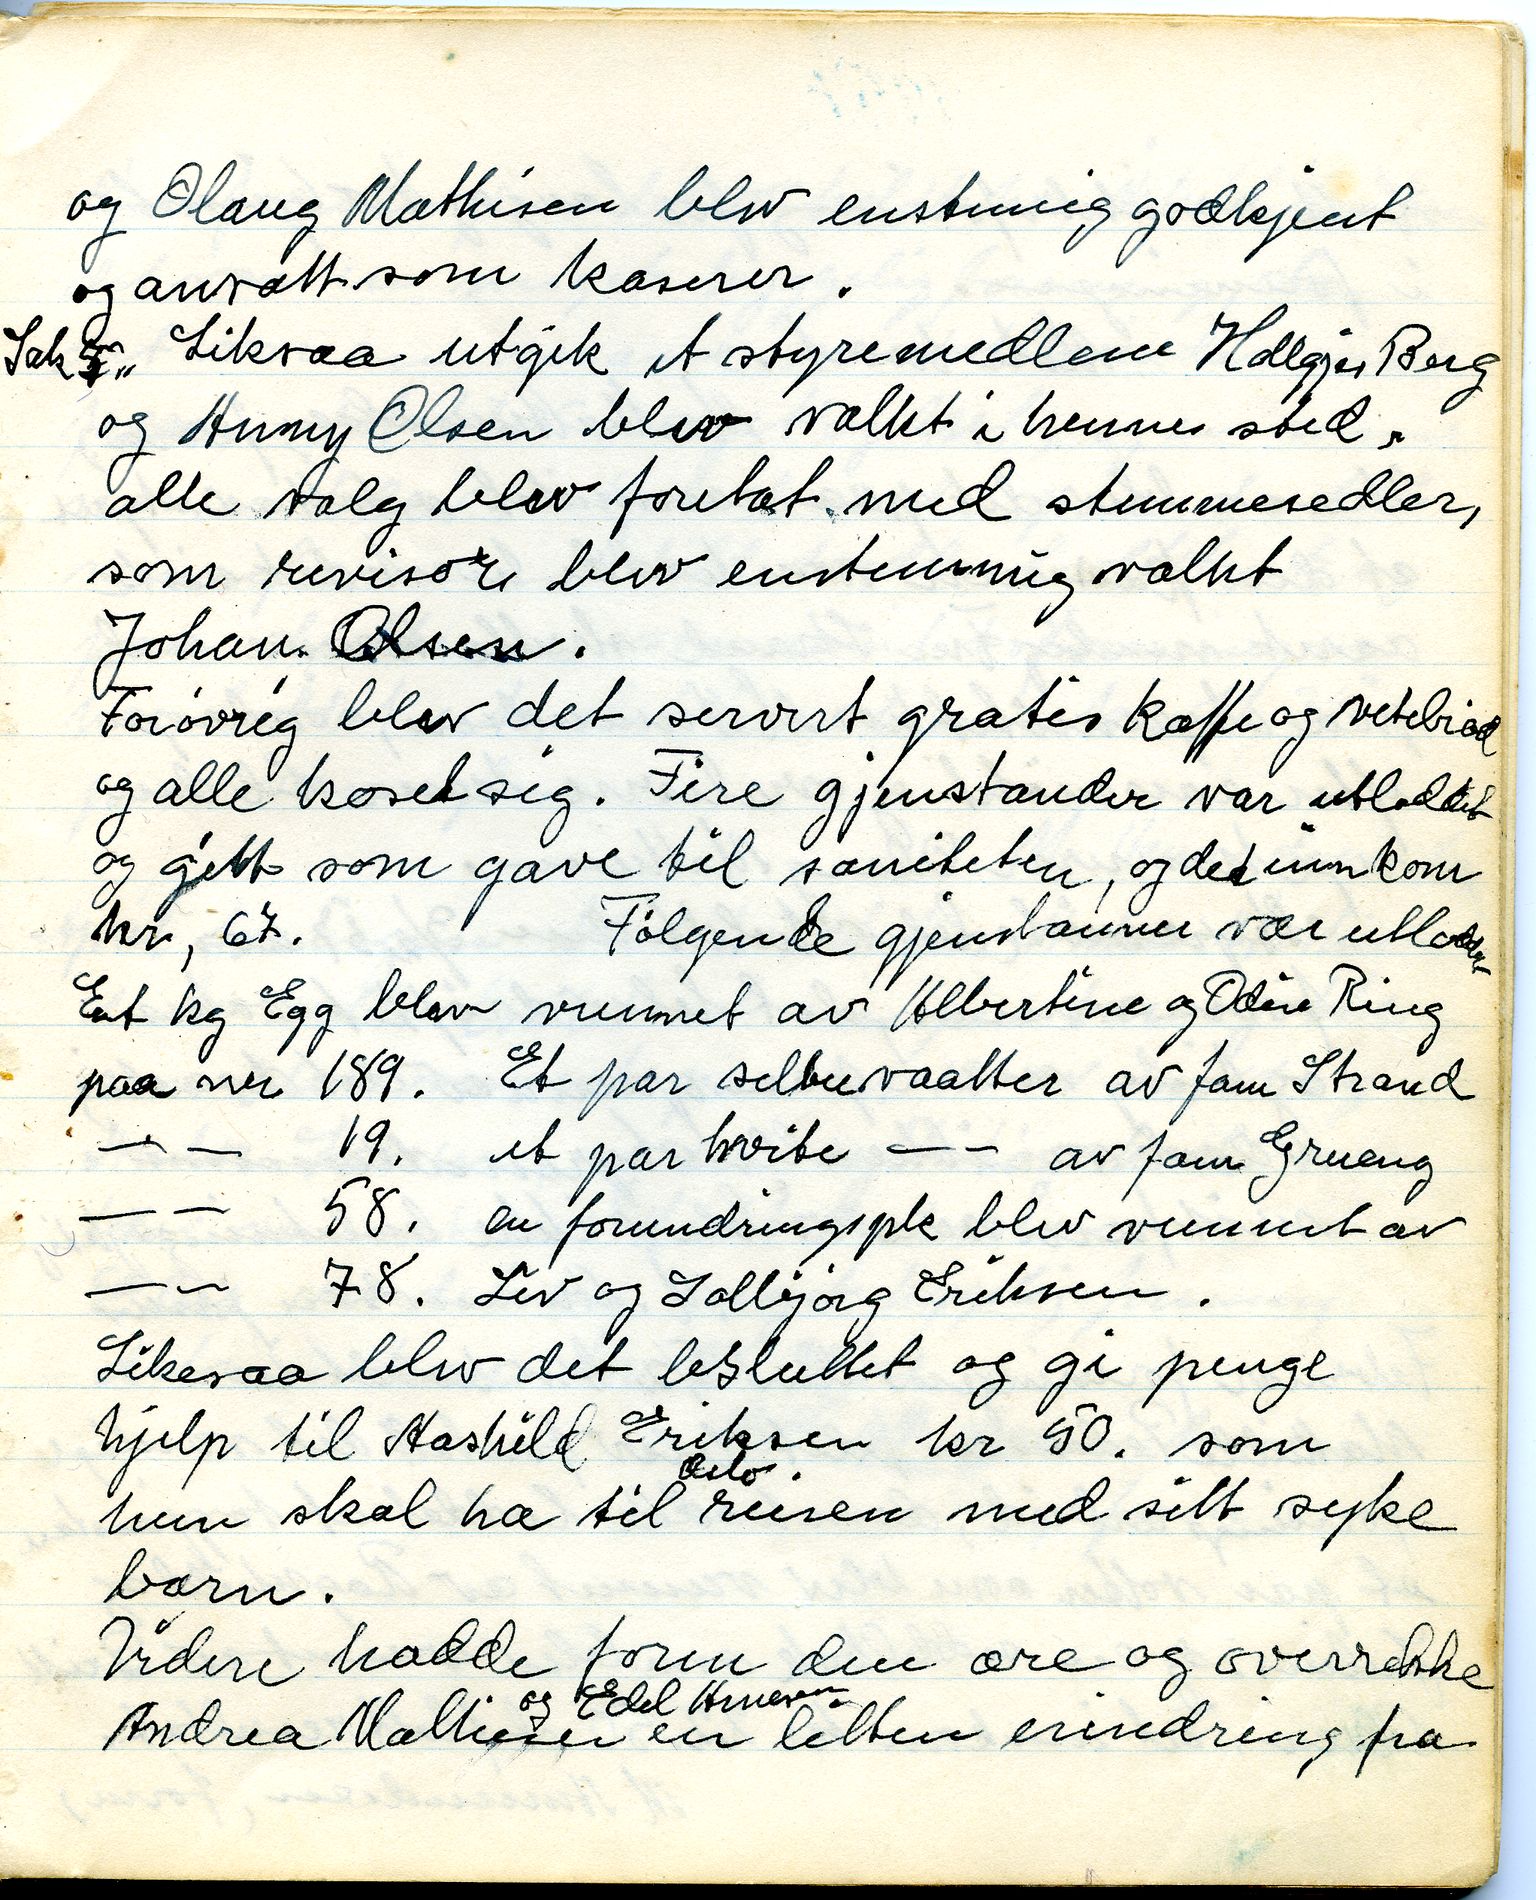 og Olaug Mathisen blev enstemig godkjent
og anvalt som kaserer.
Sak 5" Liksaa utgik et styremedlem Hallgjer Berg
og Anny Olsen blev valht i hennes sted,
alle valg blev foretat med stemmesedler,
som revisors blev enstemmig valht
Johan Olsen.
Forøvrig blev det servert gratis kaffe og vetebrød
og alle koset sig. Fire gjenstander var utloddet
og gitt som gave til saniteten, og det innkom
kr, 67. Følgende gjenstanner var utloddet
Eat kg Egg blev vunnet av Albertine og Odin Ring
paa nr 189. Et par selbuvaatter av fam Strand
— — 19. et par hvite — — av fam Grueng
— — 58. en forundringspk blev vunnet av
— — 78. Liv og Solbjørg Eriksen.
Likesaa blev det besluttet og gi penge
hjelp til Aashild Eriksen kr 50. som
hun skal ha til Oslo reisen med sitt syke
barn.
Videre hadde form den ære og overrekke
Andrea Mathisen og Edel Arnesen en litten erindring fra